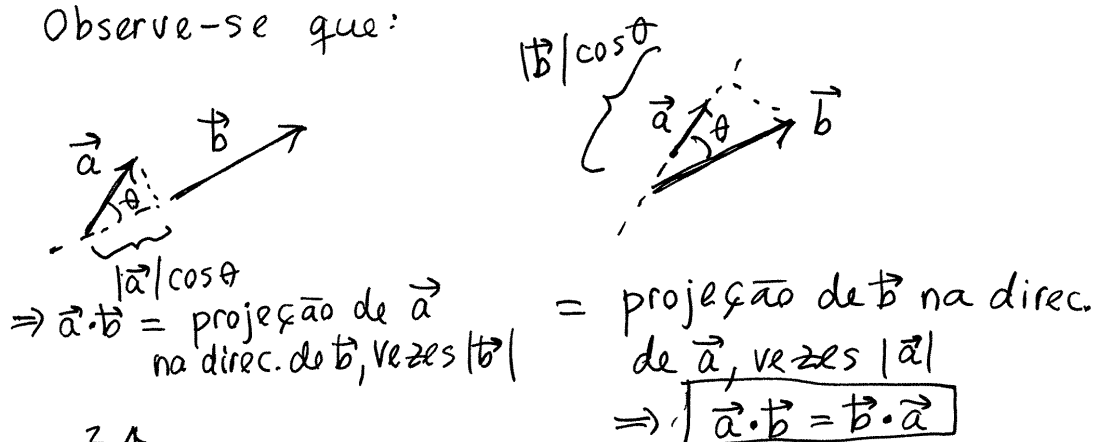 Observe-se que:
a⃗
b⃗
θ
|a⃗|cosθ
|b⃗|cosθ
a⃗
θ
b⃗
⇒ a⃗·b⃗ = projeção de a⃗
na direc. de b⃗, vezes |b⃗|
= projeção de b⃗ na direc.
de a⃗, vezes |a⃗|
⇒ a⃗·b⃗ = b⃗·a⃗